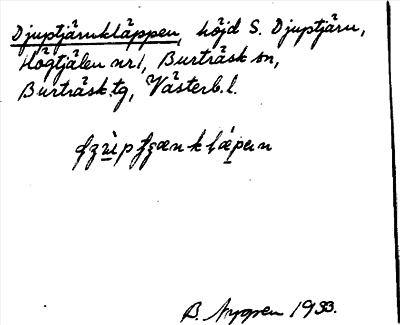 Djuptjärnkläppen, höjd S. Djuptjärn,
Högtjälen nr1, Burträsk sn,
Burträsk tg, Västerb. l.
B. Nygren 1933.